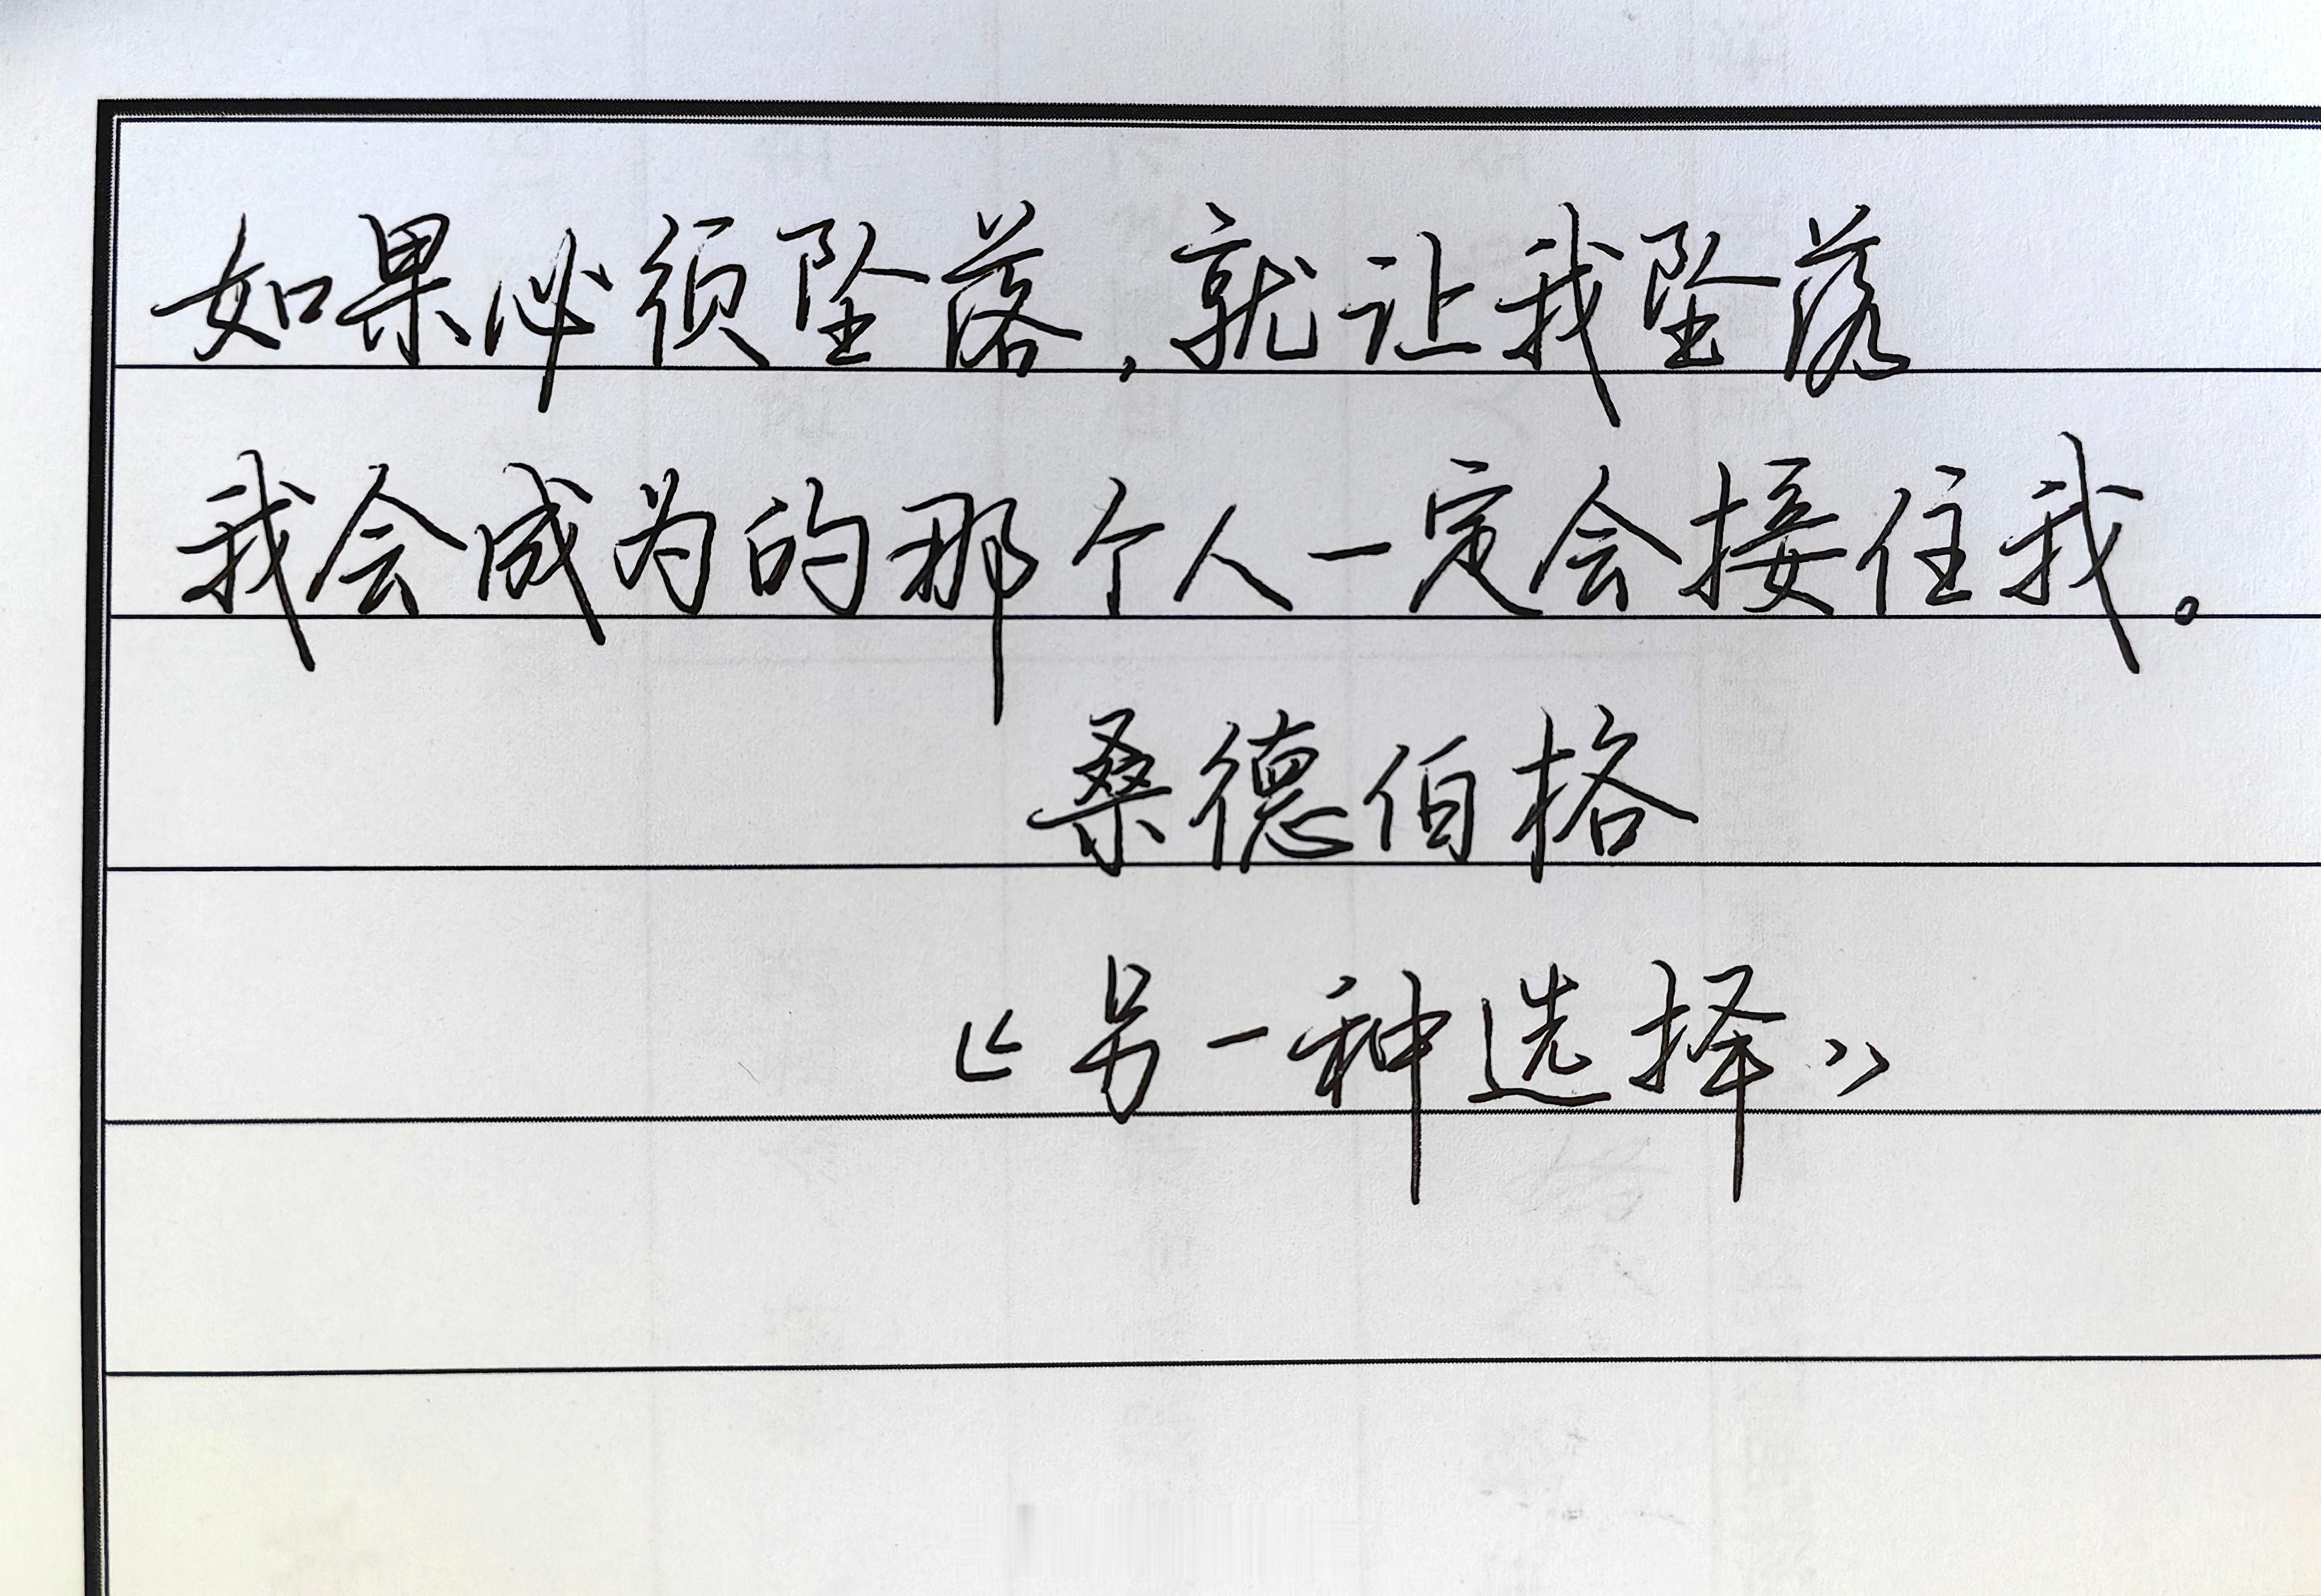 如果必须坠落，就让我坠落
我会成为的那个人一定会接住我。
桑德伯格
《另一种选择》